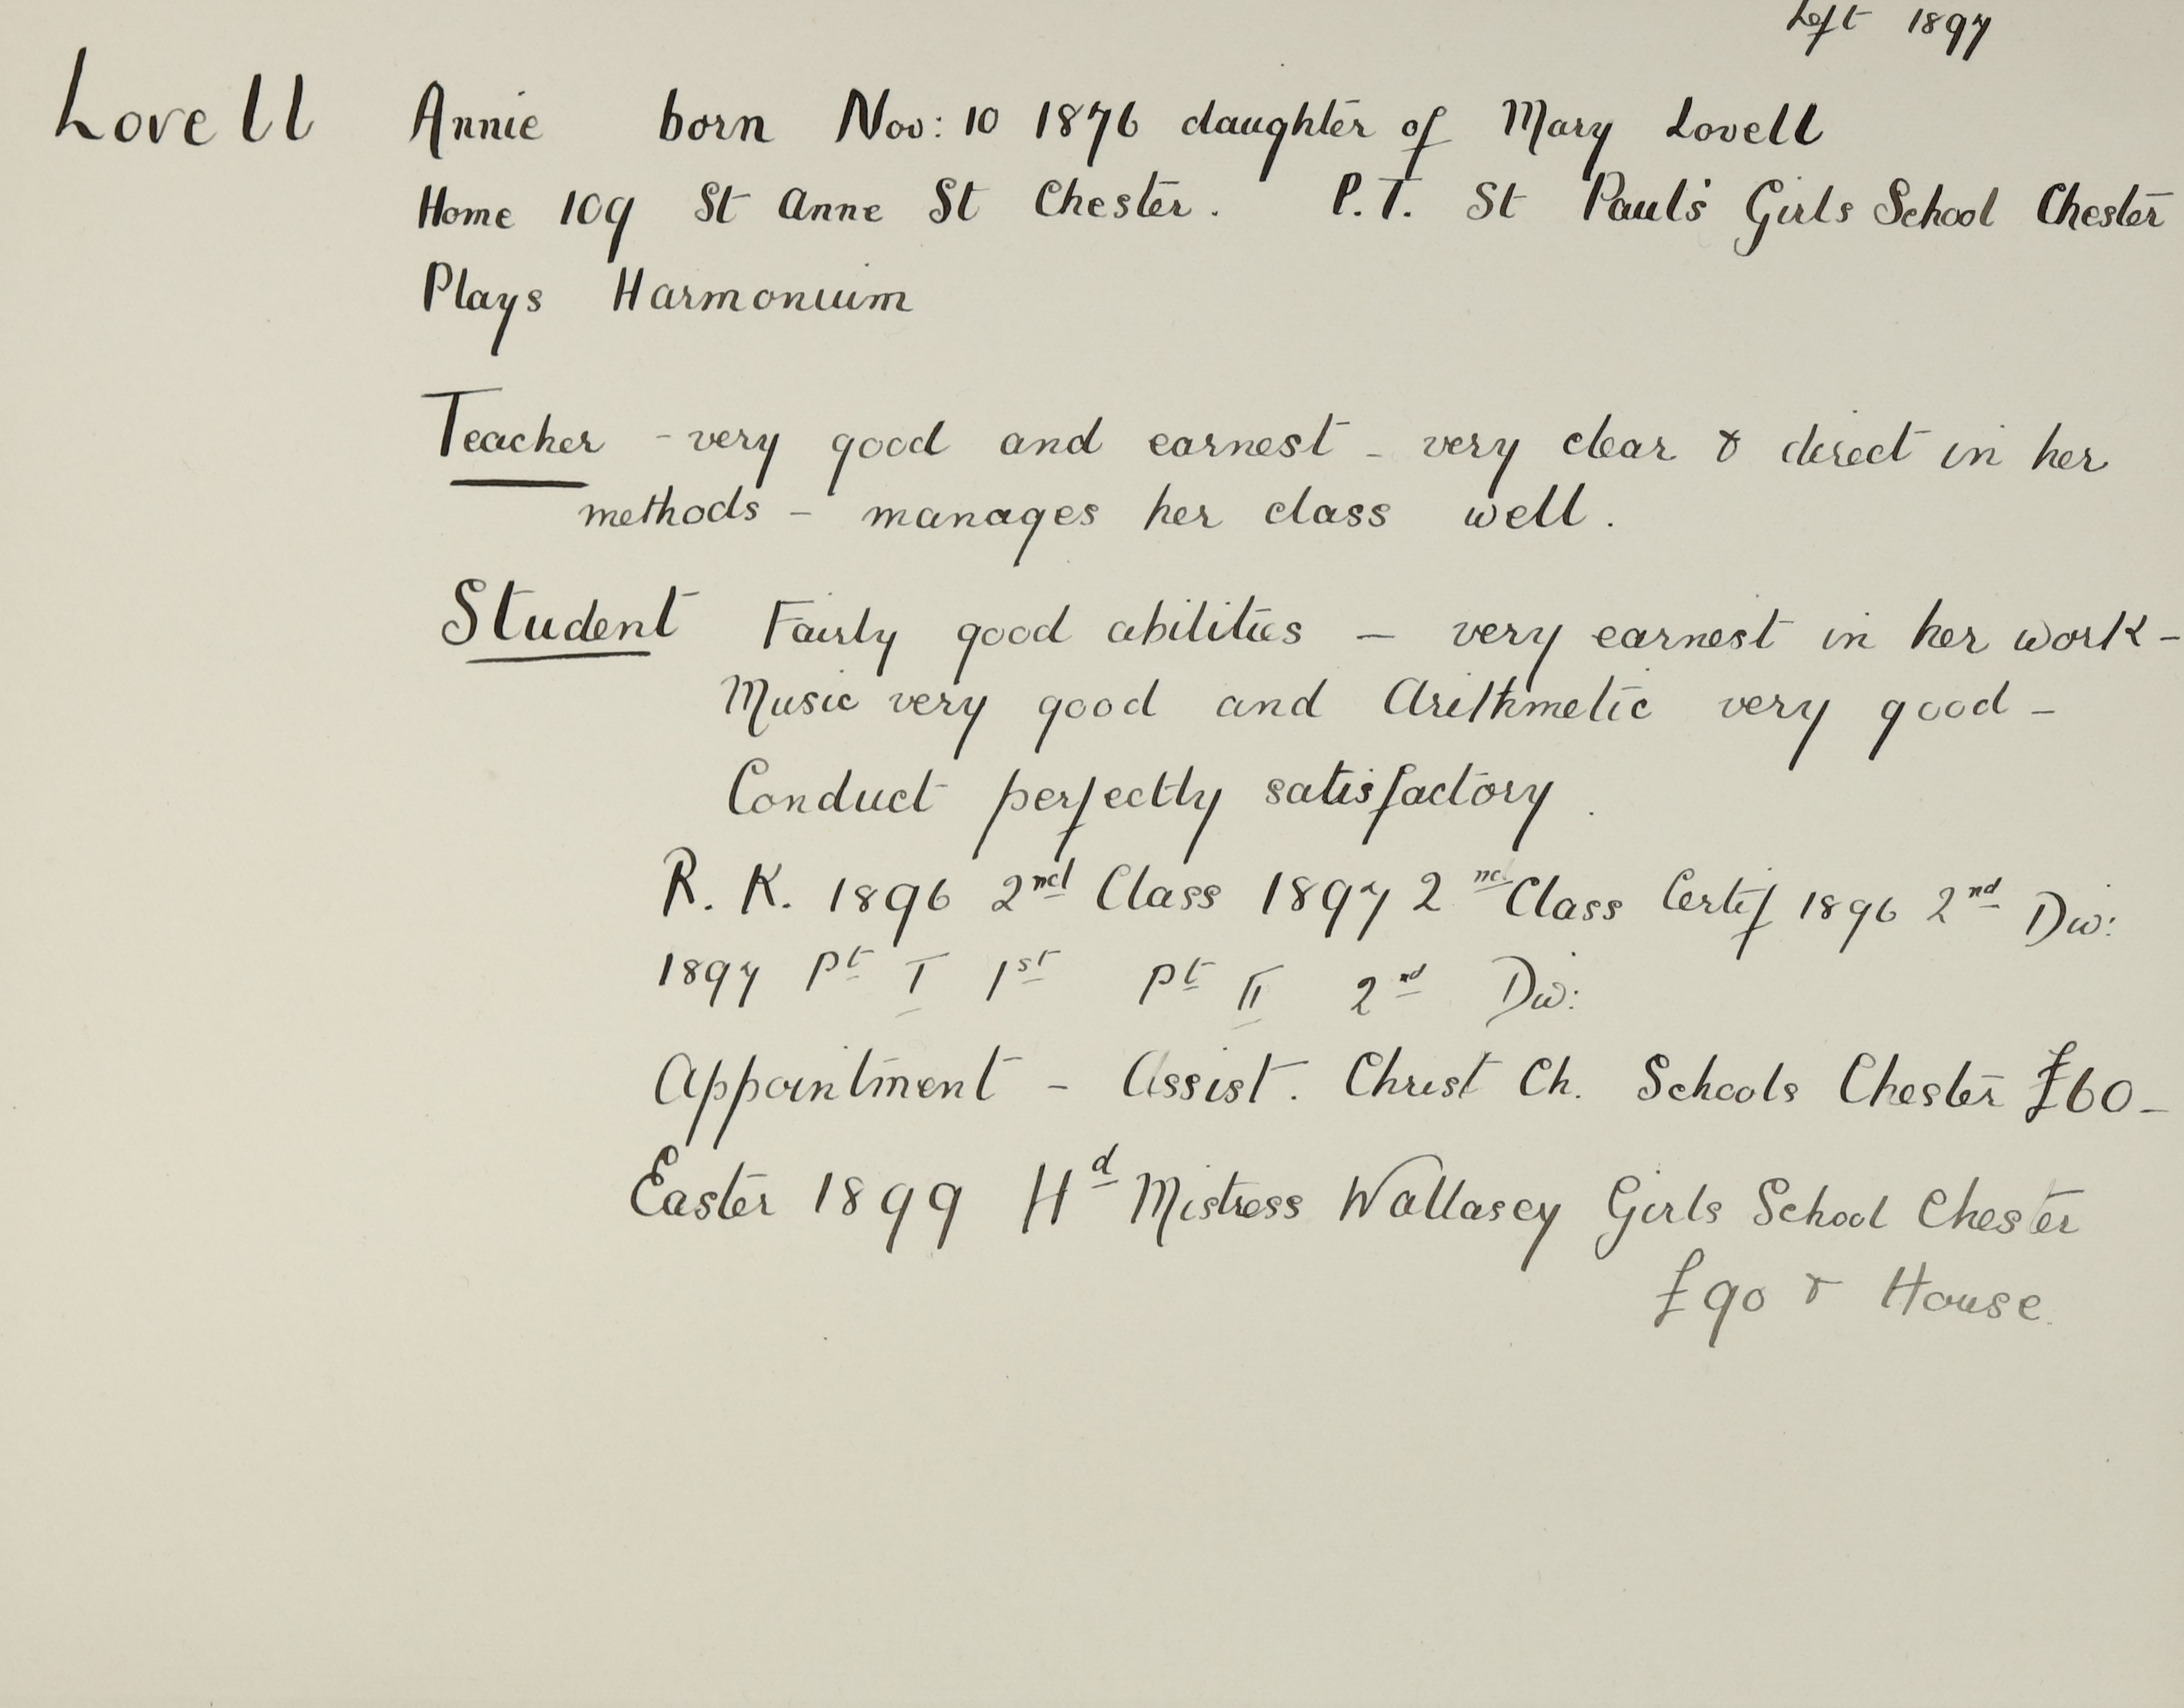 Left 1897
Lovell Annie born Nov: 10 1876 daughter of Mary Lovell
Home 109 St Anne St Chester. P.T. St Paul's Girls School Chester
Plays Harmonium
Teacher - very good and earnest - very clear & direct in her
methods - manages her class well.
Student Fairly good abilities - very earnest in her work -
Music very good and Arithmetic very good -
Conduct perfectly satisfactory.
R. K. 1896 2nd Class 1897 2nd Class Certif 1896 2nd Div:
1897 Pt I 1st Pt II 2nd Div:
Appointment - Assist. Christ Ch. Schools Chester £60 -
Easter 1899 Hd Mistress Wallasey Girls School Chester
£90 & House.